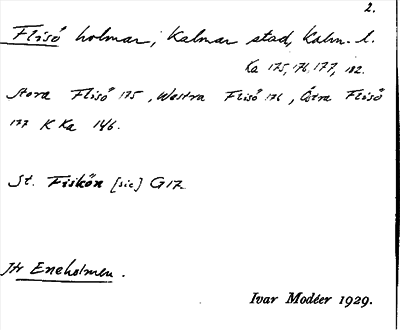 2.
Flisö holmar, Kalmar stad, Kalm. l.
Ka 175, 176, 177, 182.
Stora Flisö 175, Westra Flisö 176, Östra Flisö
177 K Ka 146.
St. Fiskön [sic] G17
Jfr Eneholmen.
Ivar Modéer 1929.